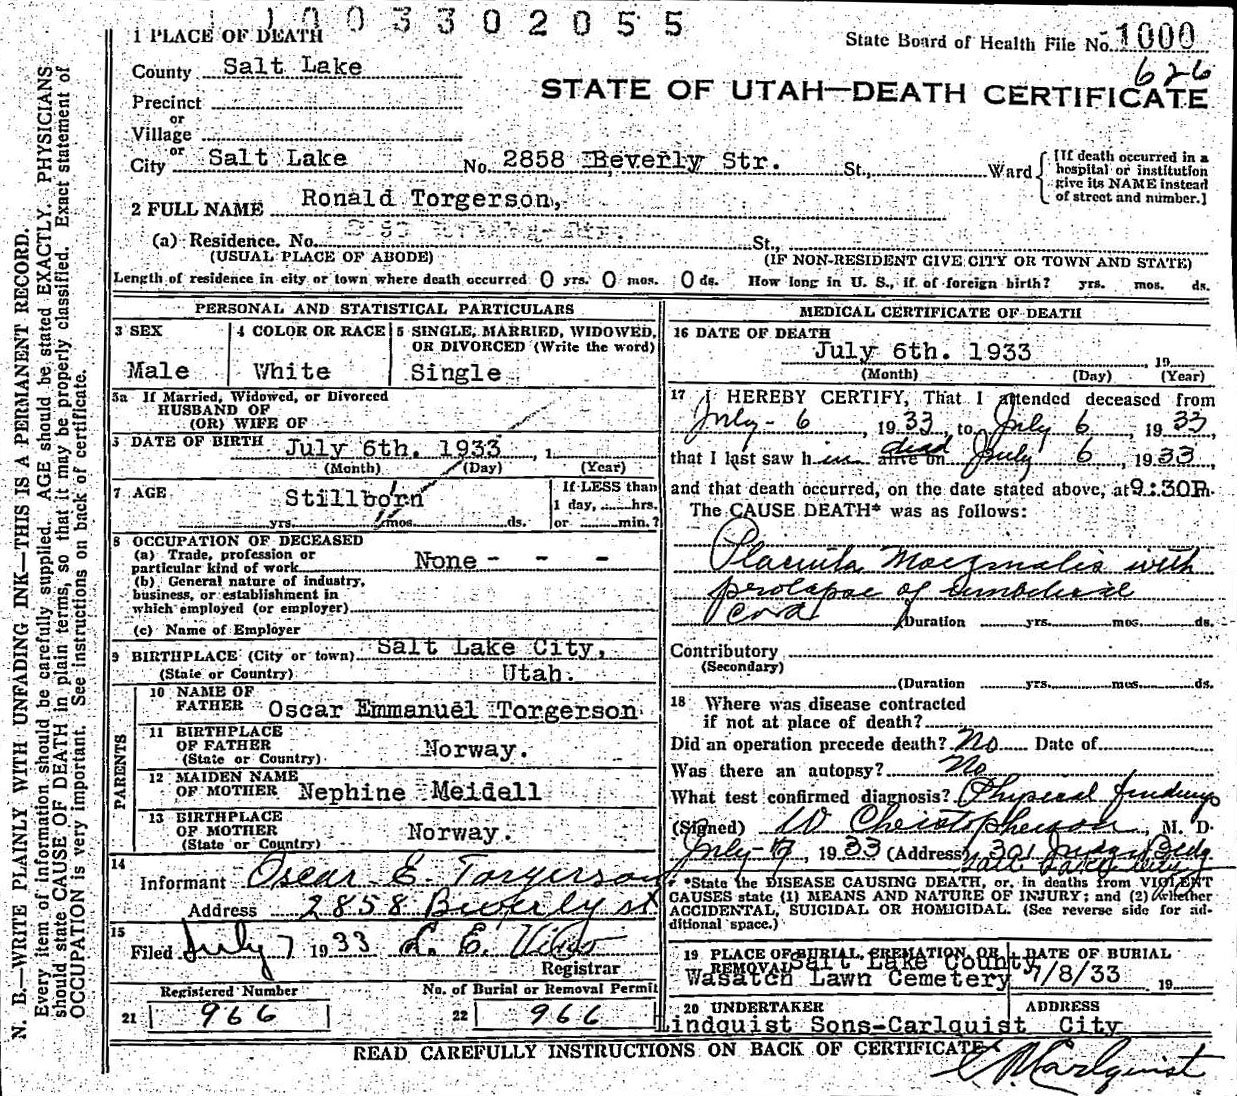 1003302055
State Board of Health File No. 1000
626
STATE OF UTAH—DEATH CERTIFICATE
1 PLACE OF DEATH
County Salt Lake
Precinct
or
Village
or
City Salt Lake No. 2858 Beverly Str. St., Ward
[If death occurred in a
hospital or institution
give its NAME instead
of street and number.]
2 FULL NAME Ronald Torgerson,
(a) Residence. No. St.,
(USUAL PLACE OF ABODE) (IF NON-RESIDENT GIVE CITY OR TOWN AND STATE)
Length of residence in city or town where death occurred 0 yrs. 0 mos. 0 ds. How long in U. S., if of foreign birth? yrs. mos. ds.
PERSONAL AND STATISTICAL PARTICULARS
3 SEX 4 COLOR OR RACE 5 SINGLE, MARRIED, WIDOWED,
OR DIVORCED (Write the word)
Male White Single
5a If Married, Widowed, or Divorced
HUSBAND OF
(OR) WIFE OF
DATE OF BIRTH July 6th. 1933, 1
(Month) (Day) (Year)
7 AGE Stillborn
If LESS than
1 day, hrs.
yrs. mos. ds. or min.?
8 OCCUPATION OF DECEASED
(a) Trade, profession or
particular kind of work None - - -
(b) General nature of industry,
business, or establishment in
which employed (or employer)
(c) Name of Employer
9 BIRTHPLACE (City or town) Salt Lake City,
(State or Country) Utah.
PARENTS
10 NAME OF
FATHER Oscar Emmanuel Torgerson
11 BIRTHPLACE
OF FATHER Norway.
(State or Country)
12 MAIDEN NAME
OF MOTHER Nephine Meidell
13 BIRTHPLACE
OF MOTHER Norway.
(State or Country)
14
Informant Oscar E. Torgerson
Address 2858 Beverly st
15
Filed July 7 1933 L. E. Viko
Registrar
Registered Number No. of Burial or Removal Permit
21 966 22 966
MEDICAL CERTIFICATE OF DEATH
16 DATE OF DEATH
July 6th. 1933, 19
(Month) (Day) (Year)
17 I HEREBY CERTIFY, That I attended deceased from
July - 6, 1933, to July 6, 1933,
dead
that I last saw him alive on July 6, 1933,
and that death occurred, on the date stated above, at 9:30P.
The CAUSE DEATH* was as follows:
Placenta Marginalis with
prolapse of umbilical
cord (Duration yrs. mos. ds.
Contributory
(Secondary)
(Duration yrs. mos. ds.
18 Where was disease contracted
if not at place of death?
Did an operation precede death? No Date of
Was there an autopsy? No
What test confirmed diagnosis? Physical findings
(Signed) W Christopherson, M. D.
July 7, 1933 (Address) 301 Judge Bldg
Salt Lake City
*State the DISEASE CAUSING DEATH, or, in deaths from VIOLENT
CAUSES state (1) MEANS AND NATURE OF INJURY; and (2) whether
ACCIDENTAL, SUICIDAL OR HOMICIDAL. (See reverse side for ad-
ditional space.)
19 PLACE OF BURIAL, CREMATION OR
REMOVAL
DATE OF BURIAL
Salt Lake County
Wasatch Lawn Cemetery 7/8/33 19
20 UNDERTAKER ADDRESS
Lindquist Sons-Carlquist City
READ CAREFULLY INSTRUCTIONS ON BACK OF CERTIFICATE
Carlquist
N. B.—WRITE PLAINLY WITH UNFADING INK—THIS IS A PERMANENT RECORD.
Every item of information should be carefully supplied. AGE should be stated EXACTLY. PHYSICIANS
should state CAUSE OF DEATH in plain terms, so that it may be properly classified. Exact statement of
OCCUPATION is very important. See instructions on back of certificate.